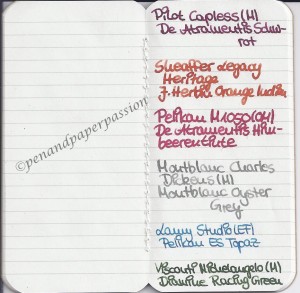 ©penandpaperpassion
Pilot Capless (M)
De Atramentis Schw-
rot
Sheaffer Legacy
Heritage
J. Herbin Orange Indien
Pelikan M1050 (M)
De Atramentis Him-
beerentinte
Montblanc Charles
Dickens (M)
Montblanc Oyster
Grey
Lamy Studio (EF)
Pelikan ES Topaz
Visconti Michelangelo (M)
Diamine Racing Green